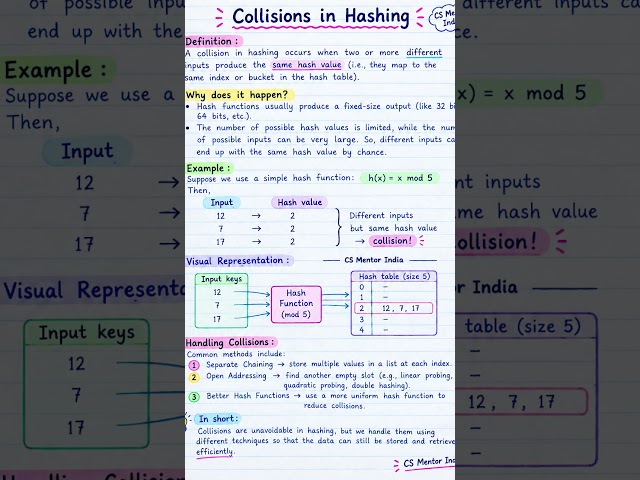 Collisions in Hashing
CS Me
Indi
Definition :
A collision in hashing occurs when two or more different
inputs produce the same hash value (i.e., they map to the
same index or bucket in the hash table).
Why does it happen?
• Hash functions usually produce a fixed-size output (like 32 bi
64 bits, etc.).
• The number of possible hash values is limited, while the num
of possible inputs can be very large. So, different inputs ca
end up with the same hash value by chance.
Example :
Suppose we use a simple hash function: h(x) = x mod 5
Then,
Input Hash value
12 → 2
7 → 2
17 → 2
Different inputs
but same hash value
→ collision!
Visual Representation :
CS Mentor India
Input keys
12
7
17
Hash
Function
(mod 5)
Hash table (size 5)
0 –
1 –
2 12, 7, 17
3 –
4 –
Handling Collisions :
Common methods include:
1 Separate Chaining → store multiple values in a list at each index.
2 Open Addressing → find another empty slot (e.g., linear probing,
quadratic probing, double hashing).
3 Better Hash Functions → use a more uniform hash function to
reduce collisions.
In short:
Collisions are unavoidable in hashing, but we handle them using
different techniques so that the data can still be stored and retrieve
efficiently.
CS Mentor Ind
end up with
Example :
Suppose we use a
Then,
Input
12 →
7 →
17 →
Visual Representa
Input keys
12
7
17
x) = x mod 5
nt inputs
me hash value
collision!
r India
table (size 5)
–
–
12, 7, 17
–
–